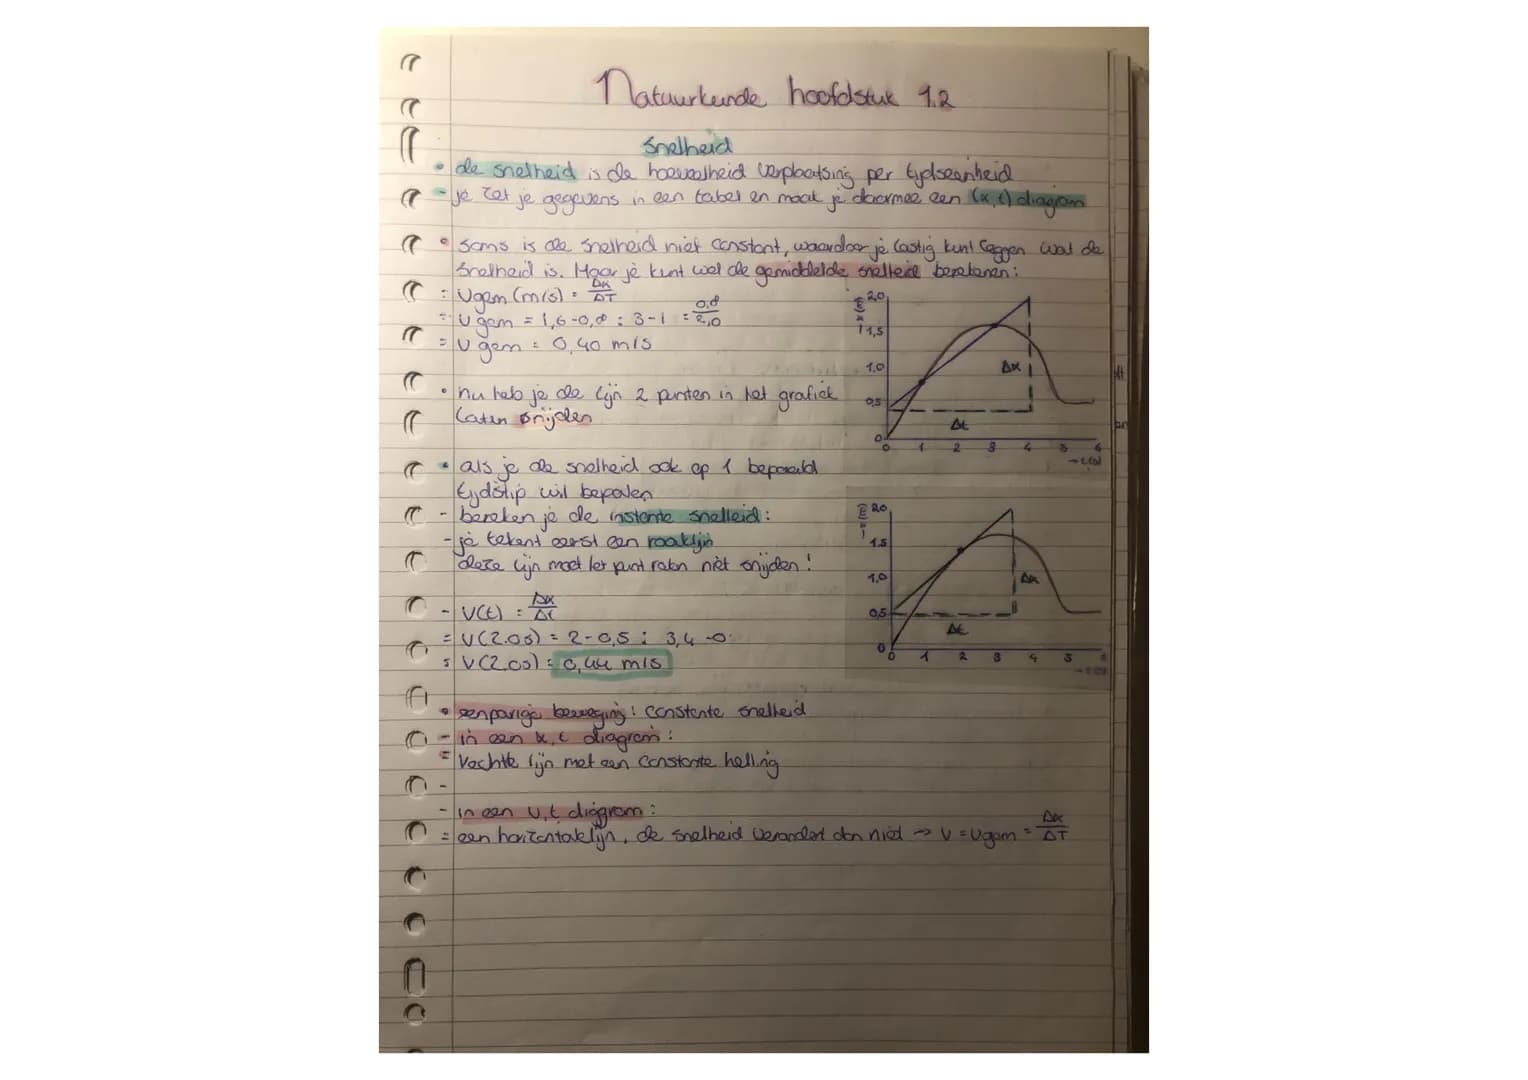 Natuurkunde hoofdstuk 1.2
Snelheid
• de snelheid is de hoeveelheid verplaatsing per tijdseenheid
- je zet je gegevens in een tabel en maak je daarmee een (x,t) diagram
• soms is de snelheid niet constant, waardoor je lastig kunt zeggen wat de
snelheid is. Maar je kunt wel de gemiddelde snelheid berekenen:
= Vgem (m/s) = Δx/ΔT
= Vgem = 1,6-0,8 : 3-1 = 0,8/2,0
= Vgem = 0,40 m/s
• nu heb je de lijn 2 punten in het grafiek
laten snijden
2,0
1,5
1,0
0,5
0
0 1 2 3 4 5 6
Δx
Δt
→ t(s)
• als je de snelheid ook op 1 bepaald
tijdstip wil bepalen
- bereken je de instante snelheid:
- je tekent eerst een raaklijn
deze lijn moet het punt raken niet snijden!
- V(t) = Δx/Δt
= V(2.0s) = 2-0,5 : 3,4-0
= V(2,0s) = 0,44 m/s
2,0
1.5
1,0
0,5
0
0 1 2 3 4 5
Δx
Δt
• eenparige beweging: constante snelheid
- in een x,t diagram:
= Rechte lijn met een constante helling
-
- in een v,t diagram:
= een horizontale lijn, de snelheid verandert dan niet → V = Vgem = Δx/ΔT